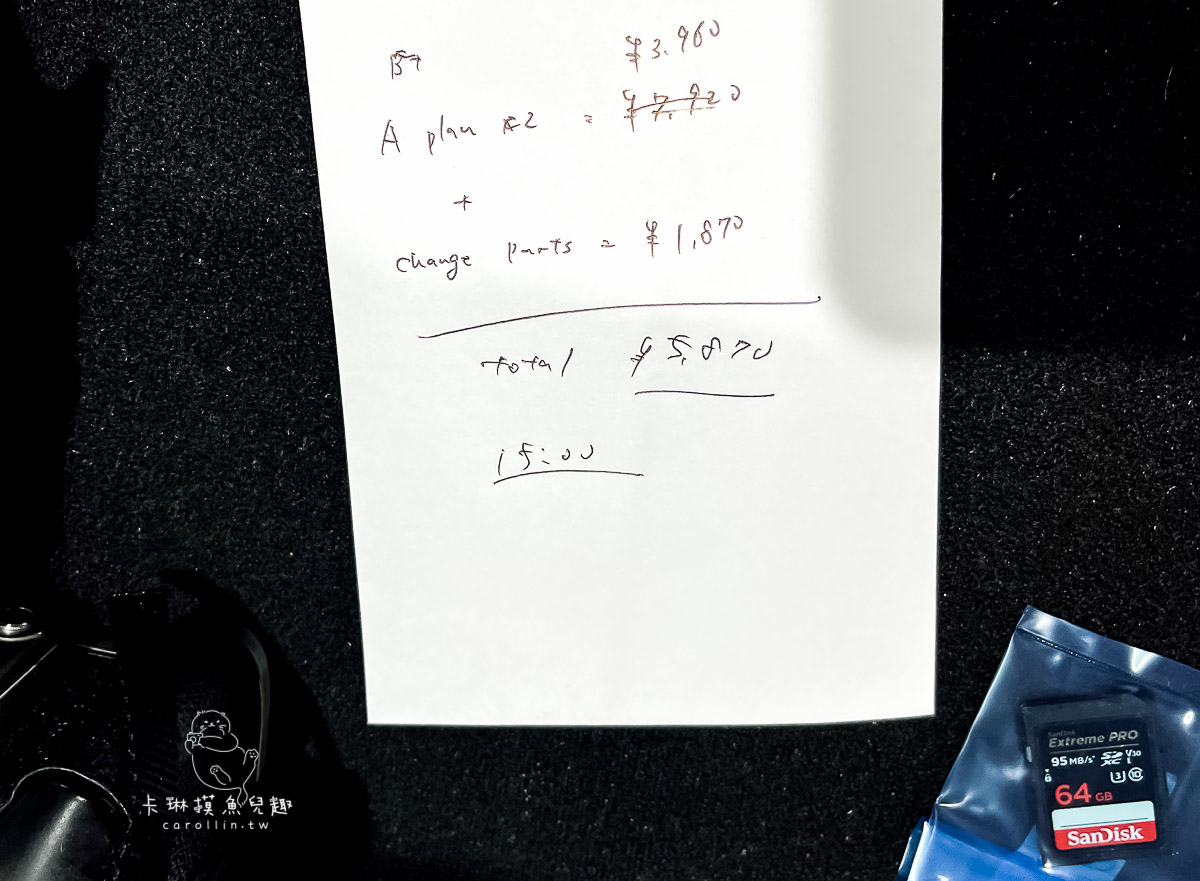 ¥3.960
A plan ×2 = ¥7,920
+
change parts = ¥1,870
total ¥5,870
15:00
卡琳摸魚兒趣
carollin.tw
SanDisk
Extreme PRO
95 MB/s SDXC I V30
3 10
64 GB
SanDisk